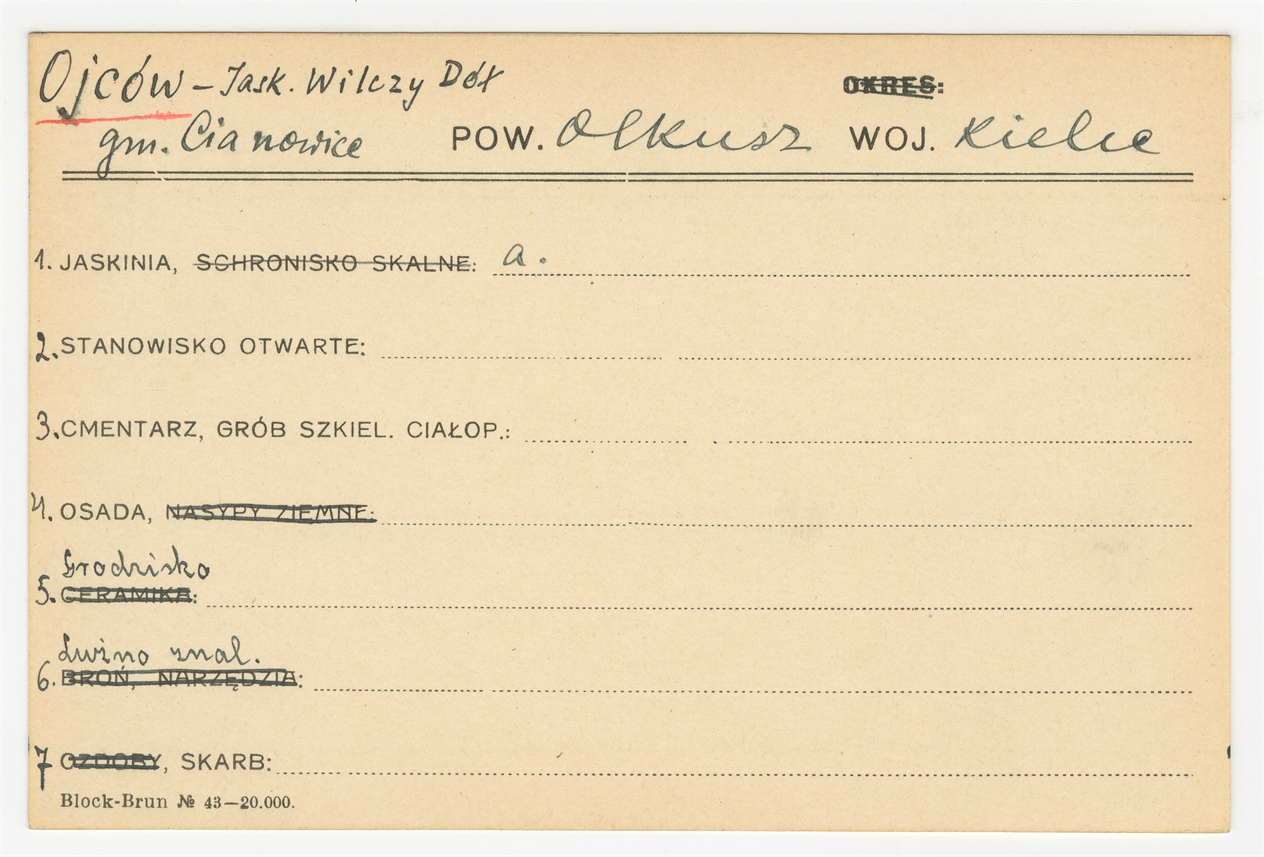 Ojców - Jask. Wilczy Dół
OKRES:
gm. Cianowice POW. Olkusz WOJ. Kielce
1. JASKINIA, SCHRONISKO SKALNE: a.
2. STANOWISKO OTWARTE:
3. CMENTARZ, GRÓB SZKIEL. CIAŁOP.:
4. OSADA, NASYPY ZIEMNE:
Grodzisko
5. CERAMIKA:
Luźno znal.
6. BROŃ, NARZĘDZIA:
7 OZDOBY, SKARB:
Block-Brun № 43—20.000.